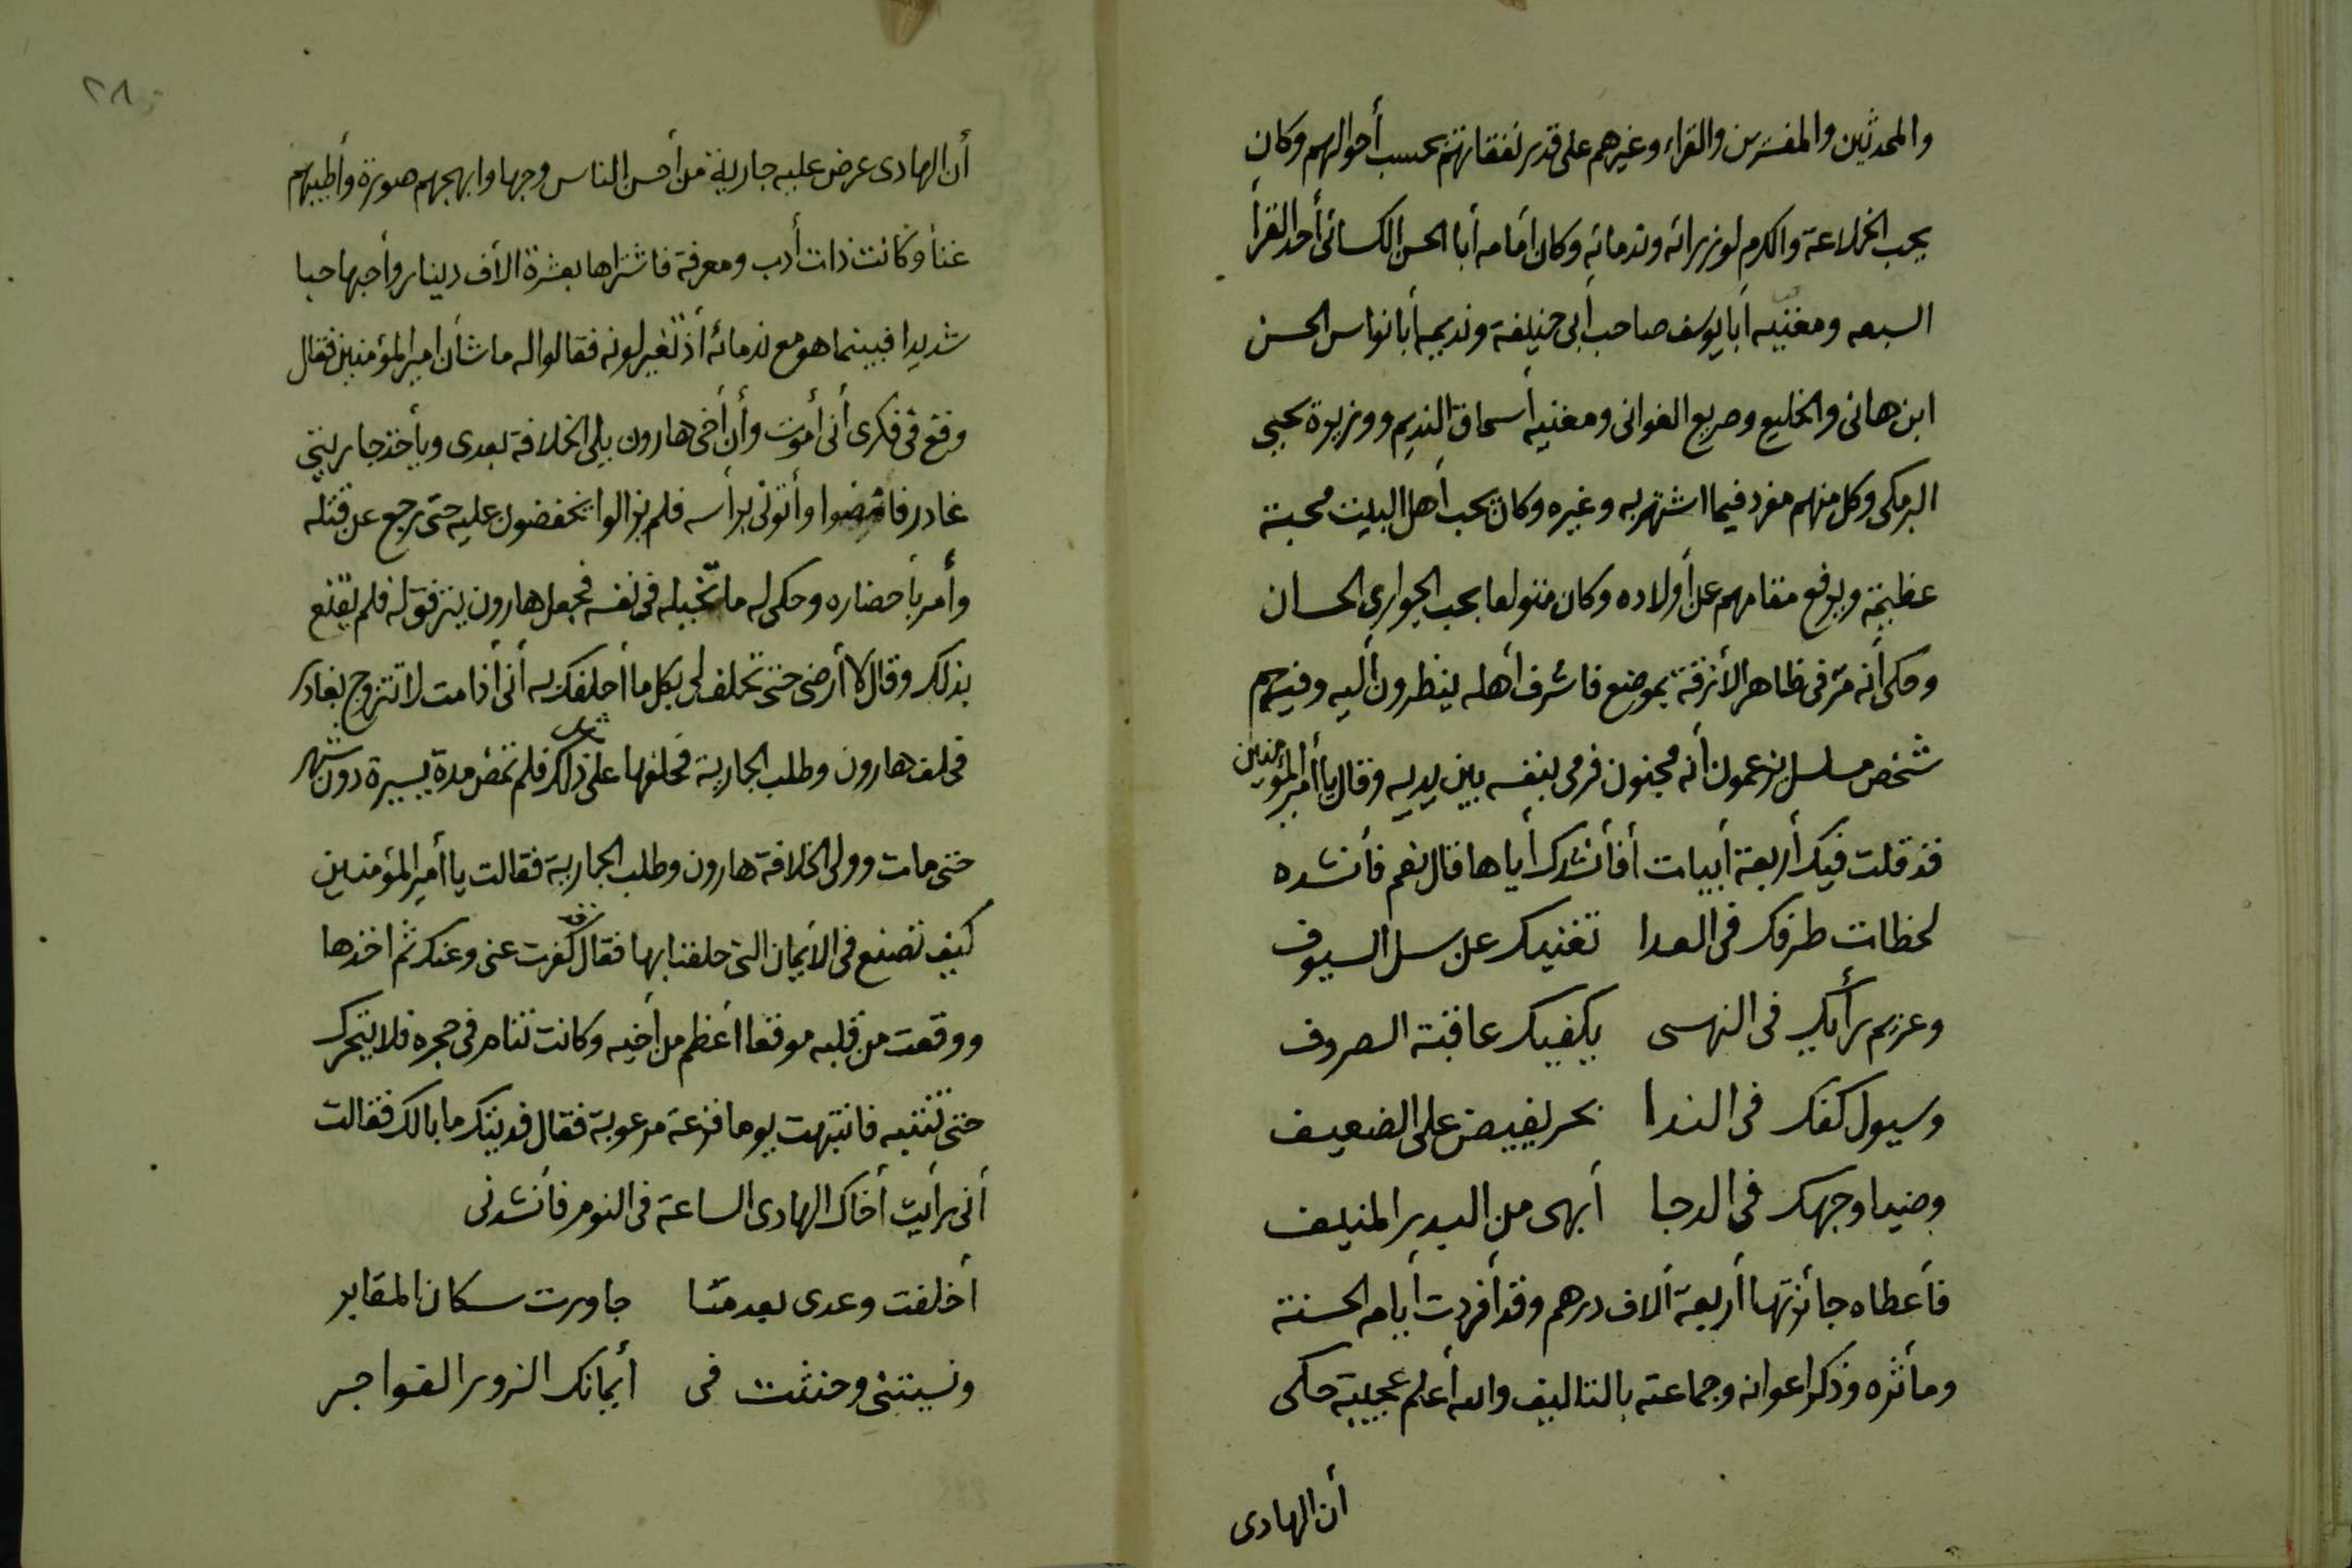 والمحدثين والمفسرين والقراء وغيرهم على قدر نفقاتهم بحسب أحوالهم وكان
يحب الخلاعة والكرم لوزرائه وندمائه وكان أمامه أبا الحسن الكسائى أحد القرأ
السبعه ومغنيه أبا يوسف صاحب أبى حنيفة ونديمه أبا نواس الحسن
ابن هانى والخليع وصريع الغوانى ومغنيه أسحاق النديم ووزيرة يحيى
البرمكى وكل منهم مفرد فيما اشتهر به وغيره وكان يحب أهل البيت محبة
عظيمة ويرفع مقامهم عن أولاده وكان متولعا بحب الجوارى الحسان
وحكى أنه مر فى ظاهر الأزقة بموضع فاشرف أهله ينظرون أليه وفيهم
شخص مسلسل يزعمون أنه مجنون فرمى بنفسه بين يديه وقال يا أمير المؤمنين
قد قلت فيك أربعة أبيات أفأنشدك أياها قال نعم فأنشده
لحظات طرفك فى العدا تغنيك عن سل السيوف
وعزيم رأيك فى النهى يكفيك عاقبة الصروف
وسيول كفك فى الندا بحر يفيض على الضعيف
وضيا وجهك فى الدجا أبهى من البدر المنيف
فأعطاه جائزتها أربعة ألاف درهم وقد أفردت أيامه الحسنة
ومأثره وذكر اعوانه وجماعته بالتاليف والله أعلم عجيبة حكى
أن الهادى
٢٨
أن الهادى عرض عليه جارية من أحسن الناس وجها وابهجهم صورة وأطيبهم
غنأ وكانت ذات أدب ومعرفة فاشتراها بعشرة الأف دينار وأحبها حبا
شديدا فبينما هو مع ندمائه أذ تغير لونه فقالوا له ما شأن امير المؤمنين فقال
وقع فى فكرى أنى أموت وأن أخى هارون يلى الخلافة بعدى ويأخذ جاريتى
غادر فامضوا وأتونى برأسه فلم يزالوا يخفضون عليه حتى رجع عن قتله
وأمر بأحضاره وحكى له ما تخيله فى نفسه فجعل هارون يترقق له فلم يقنع
بذلك وقال لا أرضى حتى تحلف لى بكل ما أحلفك به أنى أذا مت لا تتزوج بغادر
فحلف هارون وطلب الجارية فحلفها على ذلك فلم تمض مدة يسيرة دون شهر
حتى مات وولى الخلافة هارون وطلب الجارية فقالت يا أمير المؤمنين
كيف تصنع فى الأيمان التى حلفنا بها فقال كفرت عنى وعنك ثم اخذها
ووقعت من قلبه موقعا أعظم من أخيه وكانت تنام فى حجره فلا يتحرك
حتى تنتبه فانتبهت يوما فزعة مرعوبة فقال فديتك ما بالك فقالت
أنى رأيت أخاك الهادى الساعة فى النوم فأنشدنى
أخلفت وعدى بعد ما جاورت سكان المقابر
ونسيتنى وحنثت فى أيمانك الزور الفواجر